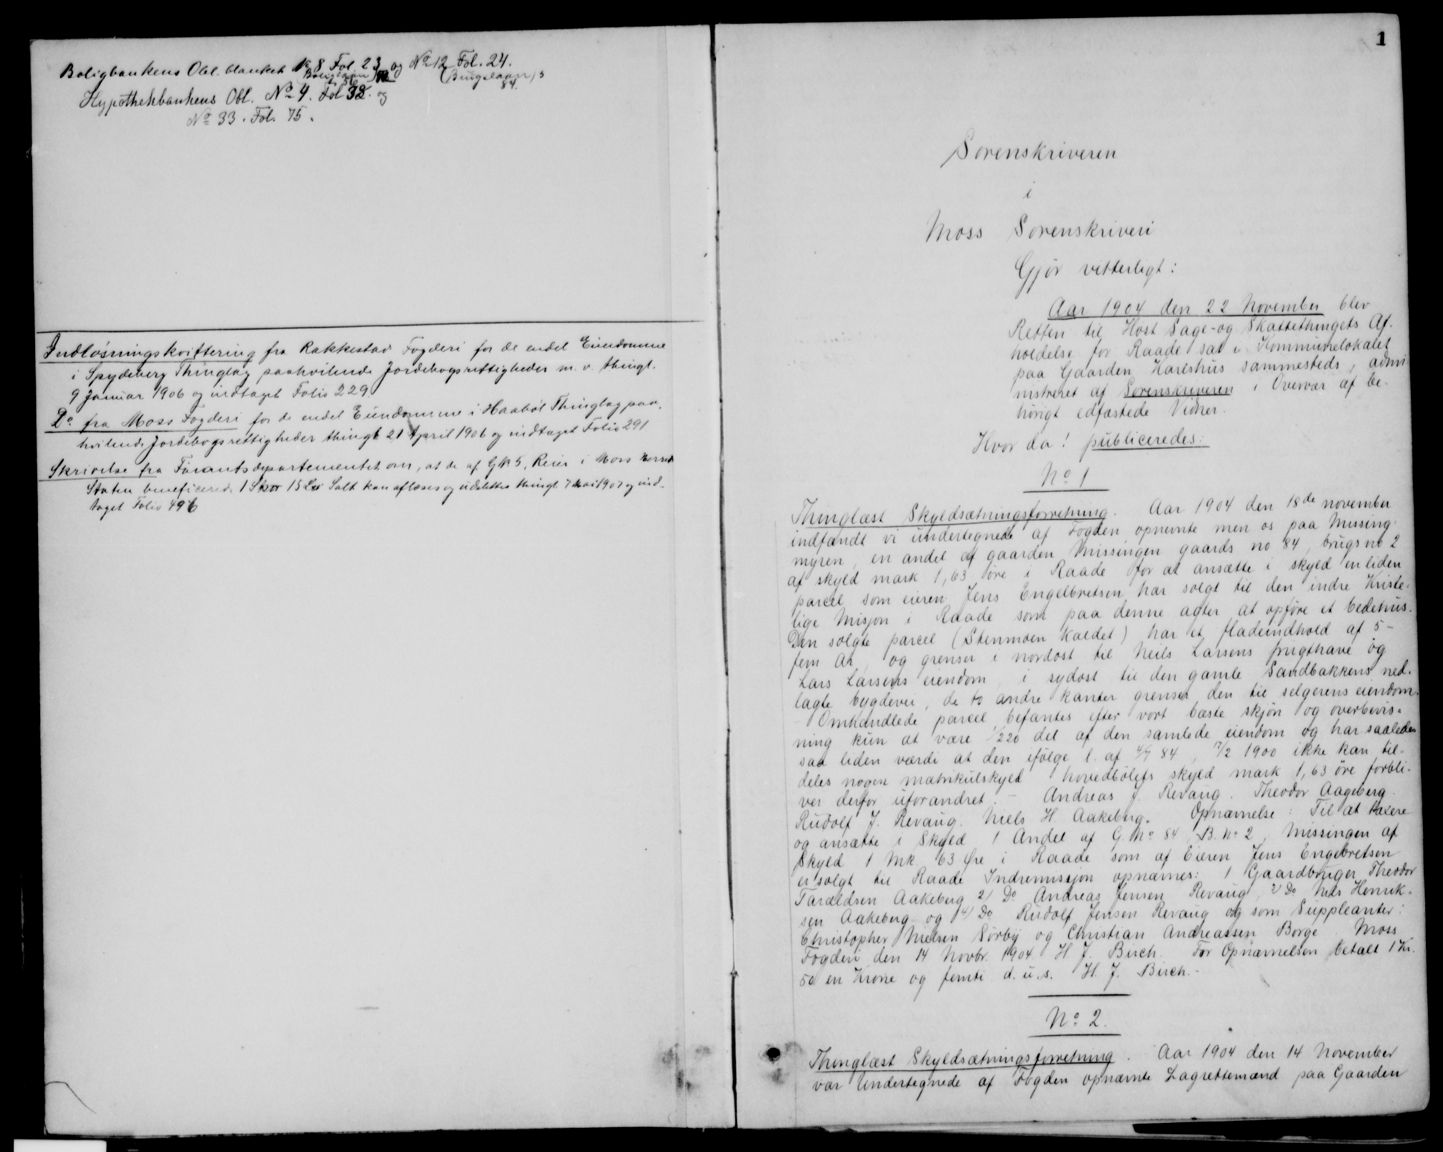 Boligbankens Obl. blanket No 8 Fol. 23 og No 12 Fol. 24.
Hypothekbankens Obl. No 4. Fol 38. og
No 33. Fol. 75.
Indløsningskvittering fra Rakkestad Fogderi for de endel Eiendomme
i Spydeberg Thinglag paahvilende Jordebogsrettigheder m. v. thingl.
9 Januar 1906 og indtaget Folio 229
Do fra Moss Fogderi for de endel Eiendomme i Haabøl Thinglag paa-
hvilende Jordebogsrettigheder thingl 21 April 1906 og indtaget Folio 291
Skrivelse fra Finantsdepartementet om, at de af G No 5, Reier i Moss
Staten beneficerede 1 Skpr 15 Salt kan afløses og udslettes thingl 7 Mai 1907 og ind-
taget Folio 496
1
Sorenskriveren
i
Moss Sorenskriveri
Gjør vitterligt:
Aar 1904 den 22 November blev
Retten til Høst Sage- og Skattethingets Af-
holdelse for Raade sat i Kommunelokalet
paa Gaarden Karlshus sammesteds, admi
nistreret af Sorenskriveren i Overvær af be-
hørigt edfæstede Vidner.
Hvor da! publiceredes:
No 1
Thinglæst Skyldsætningsforretning. Aar 1904 den 18de november
indfandt vi undertegnede af Fogden opnevnte men os paa Missing-
myren, en andel af gaarden Missingen gaards no 84, brugs no 2
af skyld mark 1,63 øre i Raade for at ansætte i skyld en liden
parcel som eieren Jens Engelbretsen har solgt til den indre Kriste-
lige Misjon i Raade som paa denne agter at opføre et bedehus.
Den solgte parcel (Stenmoen kaldet) har et fladeindhold af 5 -
fem Ar, og grenser i nordost til Neils Larsens frugthave og
Lars Larsens eiendom, i sydost til den gamle Sandbakkens ned-
lagte bygdevei, de to andre kanter grenser den til selgerens eiendom.
- Omhandlede parcel befantes efter vort bæste skjøn og overbevis-
ning kun at være 1/220 del af den samlede eiendom og har saaledes
saa liden værdi at den ifølge l. af 4/7 84, 17/2 1900 ikke kan til-
deles nogen matrikulskyld hovedbølets skyld mark 1,63 øre forbli-
ver derfor uforandret. - Andreas J. Revaug. Theodor Aageberg.
Rudolf J. Revaug. Niels H. Aakeberg. Opnævnelse: Til at taxere
og ansætte i Skyld 1 Andel af G. No 84, B. No 2, Missingen af
Skyld 1 Mk 63 Øre i Raade som af Eieren Jens Engebretsen
er solgt til Raade Indremissjon opnævnes: 1 Gaardbruger Theodor
Taraldsen Aakeberg 2/ Do Andreas Jensen Revaug, 3/ Do Nils Henrik-
sen Aakeberg og 4/ Do Rudolf Jensen Revaug og som Suppleanter:
Christopher Nielsen Sørby og Christian Andreassen Borge. Moss
Fogderi den 14 Novbr. 1904. H. J. Birch. For Opnævnelsen betalt 1 Kr.
50 en Krone og femti d. u. s. H. J. Birch.
No 2.
Thinglæst Skyldsætningsforretning. Aar 1904 den 14 November
var Undertegnede af Fogden opnævnte Lagrettemænd paa Gaarden